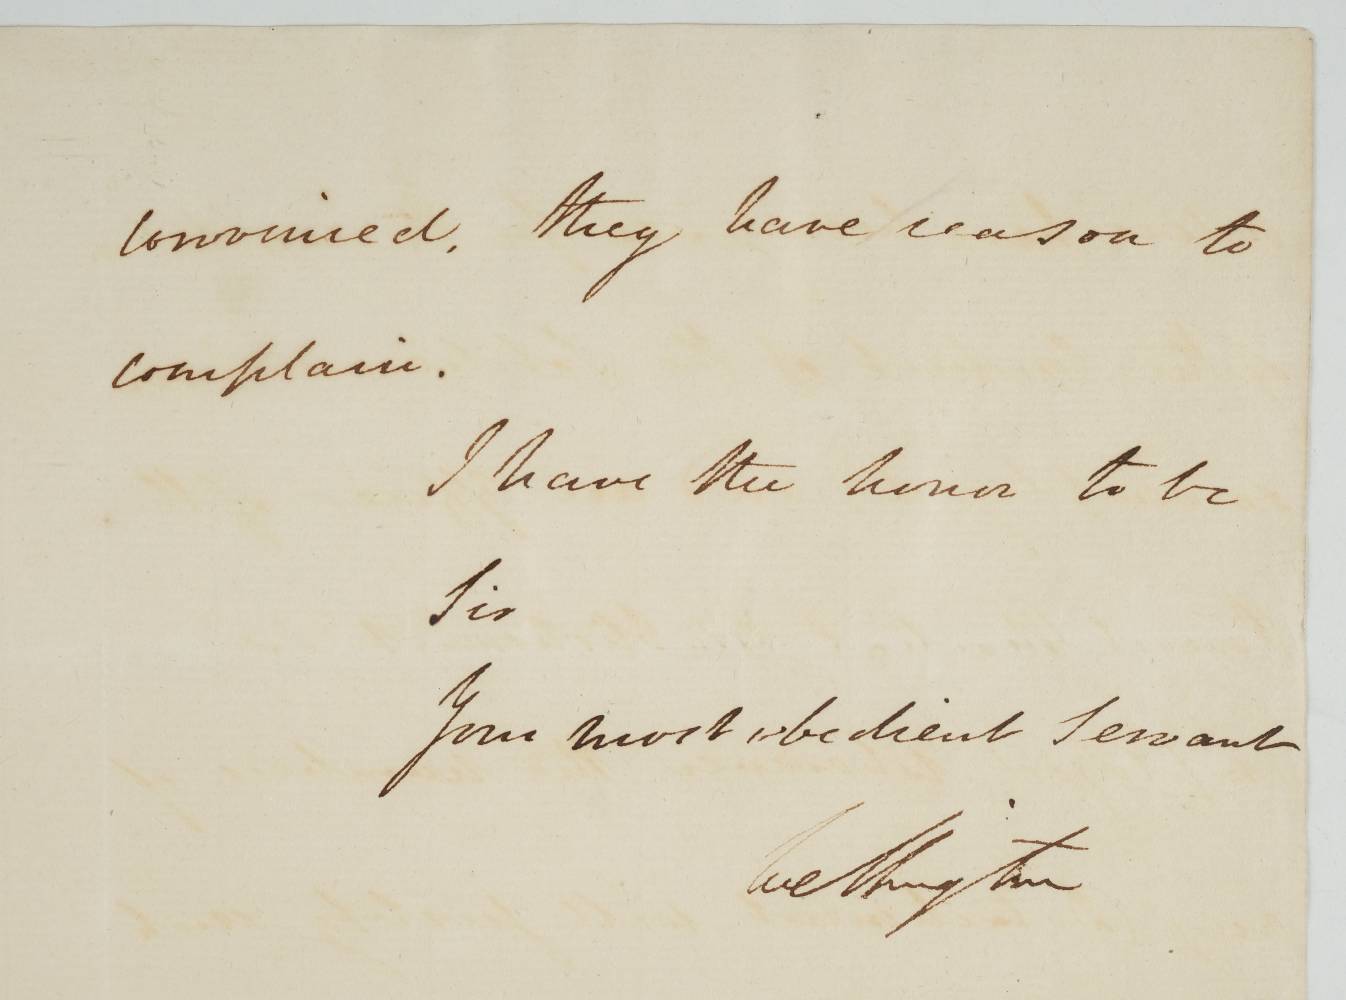 convinced, they have reason to
complain.
I have the honor to be
Sir
Your most obedient Servant
Wellington